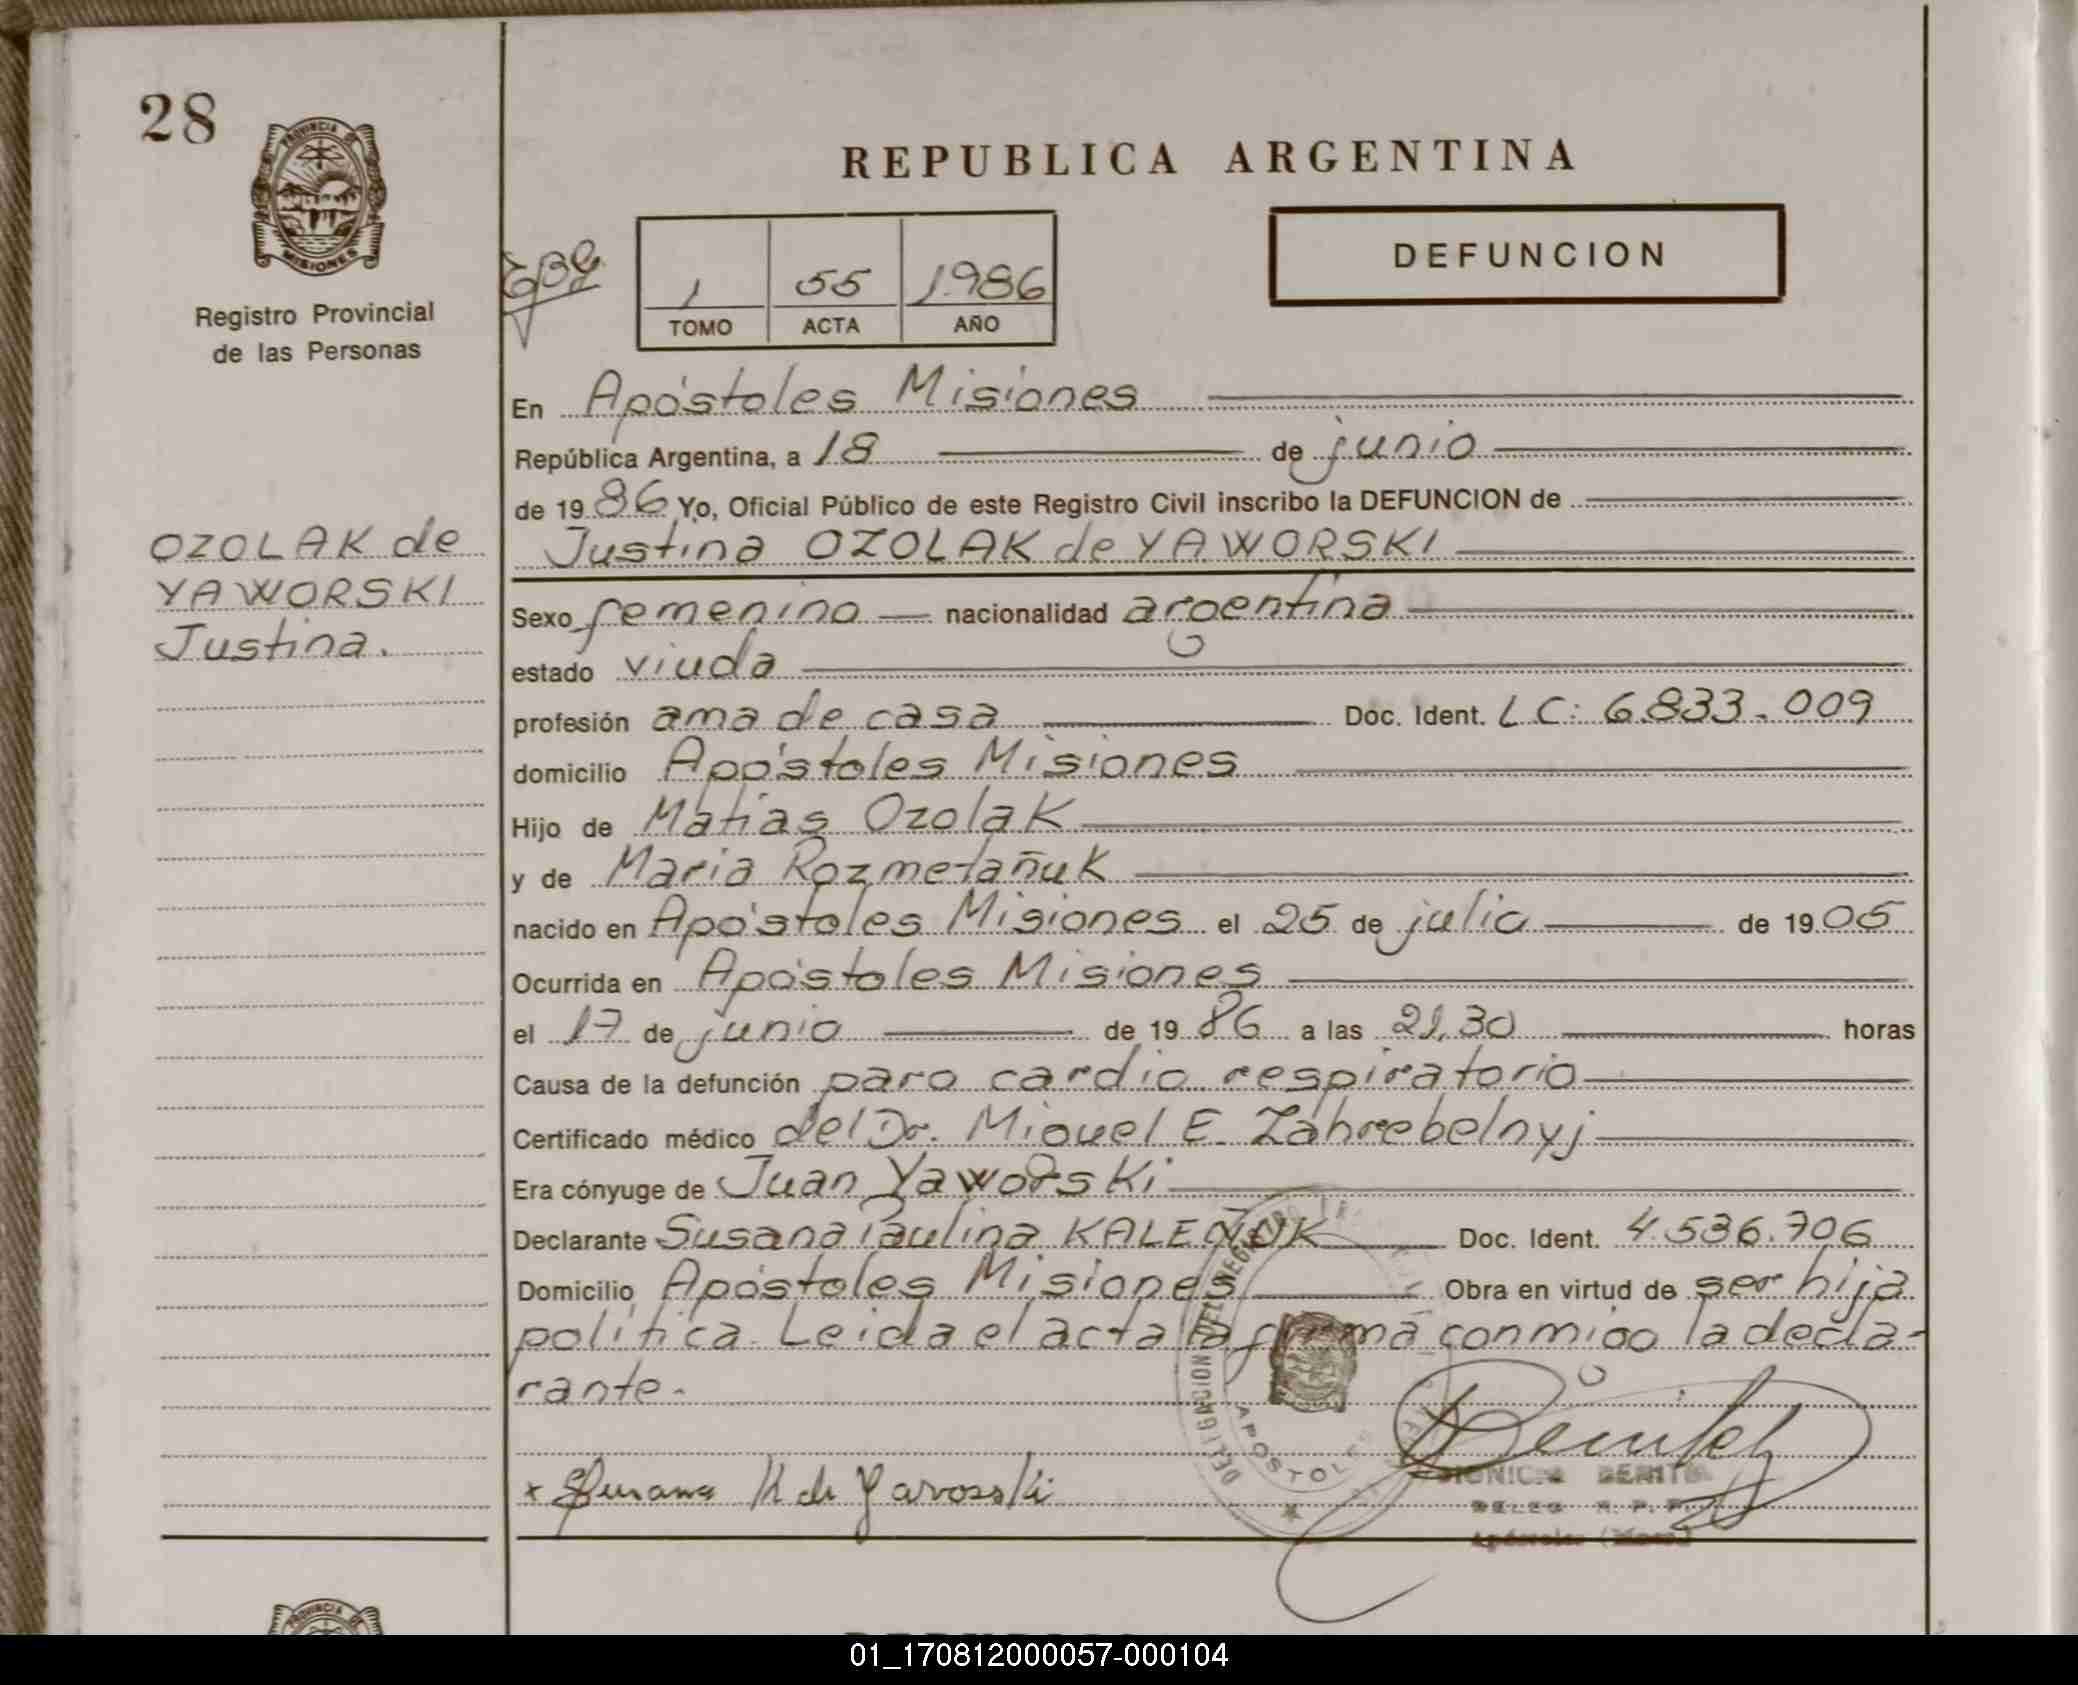 28
PROVINCIA DE
MISIONES
Registro Provincial
de las Personas
REPUBLICA ARGENTINA
DEFUNCION
1 55 1986
TOMO ACTA AÑO
En Apóstoles Misiones
República Argentina, a 18 de junio
de 1986 Yo, Oficial Público de este Registro Civil inscribo la DEFUNCION de
OZOLAK de
YAWORSKI
Justina.
Justina OZOLAK de YAWORSKI
Sexo femenino nacionalidad argentina
estado viuda
profesión ama de casa Doc. Ident. LC: 6.833.009
domicilio Apóstoles Misiones
Hijo de Matias Ozolak
y de Maria Rozmetañuk
nacido en Apóstoles Misiones el 25 de julio de 1905
Ocurrida en Apóstoles Misiones
el 17 de junio de 1986 a las 21,30 horas
Causa de la defunción paro cardio respiratorio
Certificado médico del Dr. Miguel E. Zahrebelnyj
Era cónyuge de Juan Yaworski
Declarante Susana Paulina KALEÑUK Doc. Ident. 4.536.706
Domicilio Apóstoles Misiones Obra en virtud de ser hija
politica. Leida el acta la firma conmigo la decla-
rante.
DELEGACION DEL REGISTRO
APOSTOLES
x Susana K de Yavorski
DELEG. R. P. P.
Apóstoles (Mnes.)
PROVINCIA DE
01_170812000057-000104